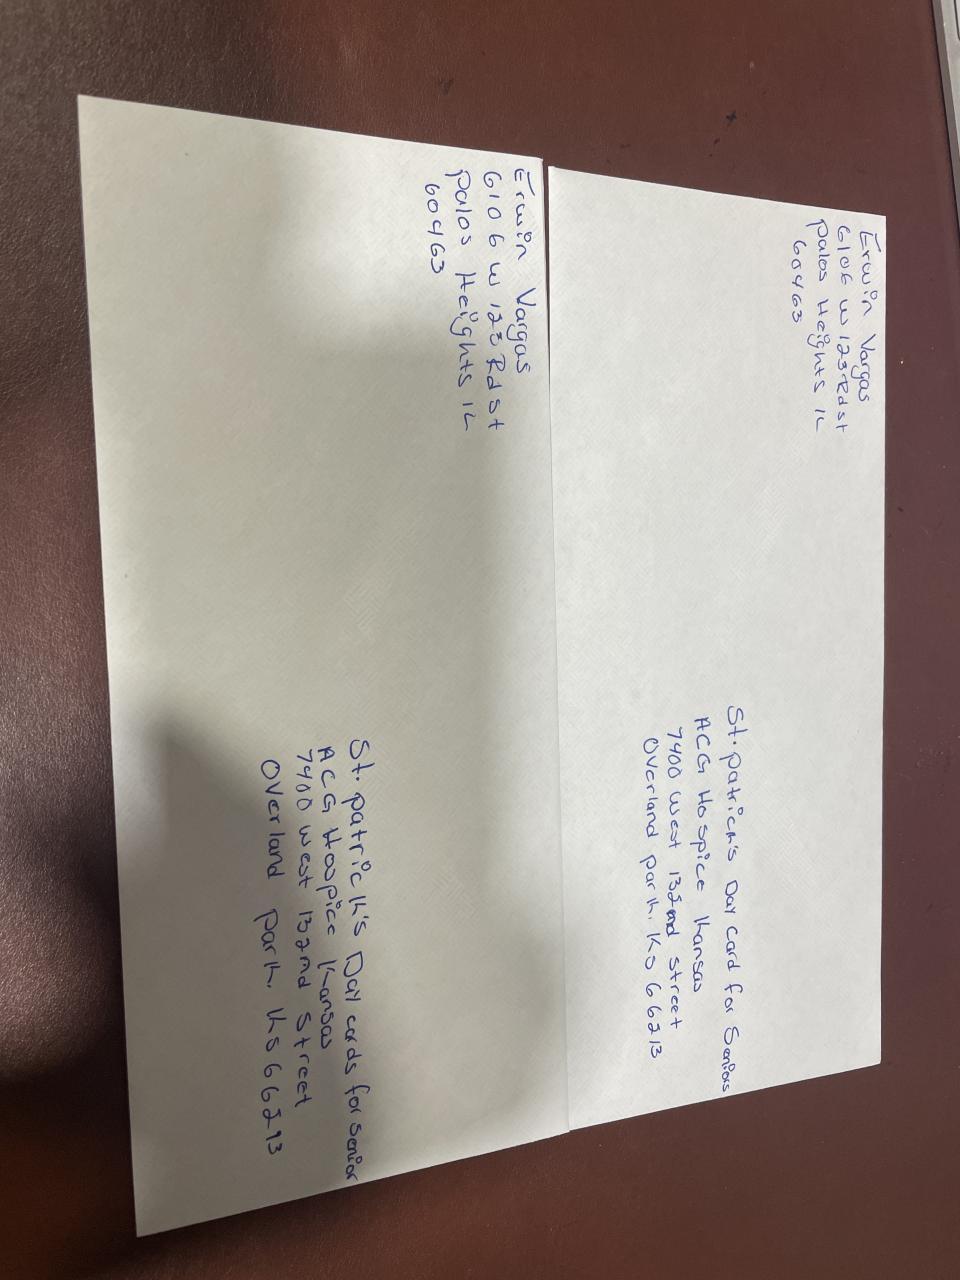 Erwin Vargas
6106 W 123Rd St
Palos Heights IL
60463
St. Patrick's Day Card for Seniors
ACG Hospice Kansas
7400 West 132nd Street
Overland Park, KS 66213
Erwin Vargas
6106 W 123Rd St
Palos Heights IL
60463
St. Patrick's Day cards for senior
ACG Hospice Kansas
7400 West 132nd Street
Overland Park, KS 66213